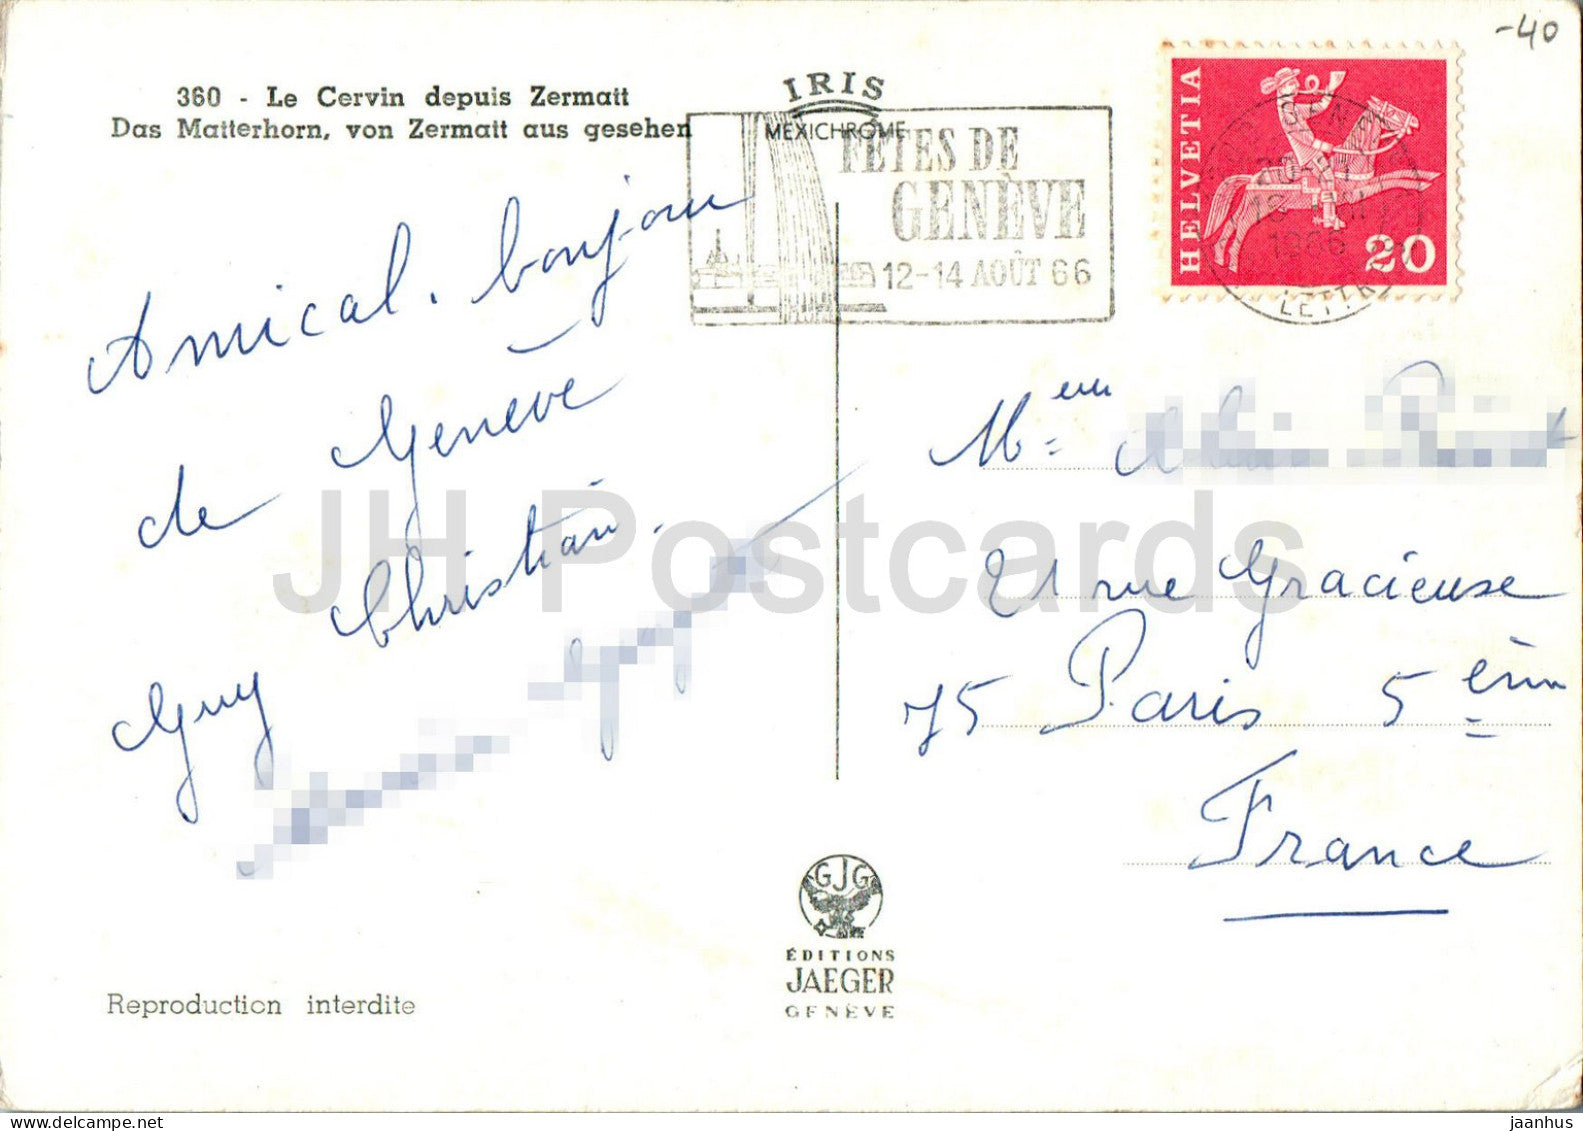 -40
360 - Le Cervin depuis Zermatt
Das Matterhorn, von Zermatt aus gesehen
IRIS
MEXICHROME
FÊTES DE
GENÈVE
12-14 AOÛT 66
HELVETIA
20
20-21
1966
LETTR
Amical. bonjour
de Genève
Christian.
Guy
M=
21 rue Gracieuse
75 Paris 5
France
JH Postcards
GJG
ÉDITIONS
JAEGER
GENÈVE
Reproduction interdite
delcampe.net
jaanhus